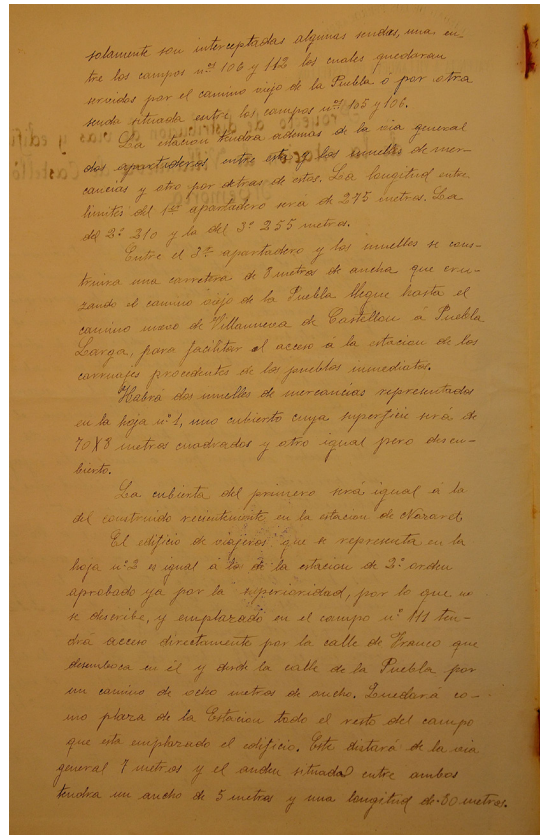 solamente son interceptadas algunas sendas, una en-
tre los campos nos 106 y 112 los cuales quedaran
servidos por el camino viejo de la Puebla ó por otra
senda situada entre los campos nos 105 y 106.
La estacion tendra ademas de la via general
dos apartaderos entre esta y los muelles de mer-
cancias y otro por detras de estos. La longitud entre
limites del 1er apartadero sera de 275 metros. La
del 2º 210 y la del 3º 255 metros.
Entre el 3er apartadero y los muelles se cons-
truira una carretera de 8 metros de ancha que cru-
zando el camino viejo de la Puebla llegue hasta el
camino nuevo de Villanueva de Castellon á Puebla
Larga, para facilitar el acceso á la estacion de los
carruajes procedentes de los pueblos inmediatos.
Habra dos muelles de mercancias representados
en la hoja nº 1, uno cubierto cuya superficie será de
70 X 8 metros cuadrados y otro igual pero descu-
bierto.
La cubierta del primero será igual á la
del construido recientemente en la estacion de Nazaret.
El edificio de viajeros que se representa en la
hoja nº 2 es igual á la de la estacion de 2º orden
aprobado ya por la superioridad, por lo que no
se describe, y emplazado en el campo nº 111 ten-
drá acceso directamente por la calle de Franco que
desemboca en él y desde la calle de la Puebla por
un camino de ocho metros de ancho. Quedará co-
mo plaza de la Estacion todo el resto del campo
que esta emplazado el edificio. Este distará de la via
general 7 metros y el anden situado entre ambos
tendra un ancho de 5 metros y una longitud de 80 metros.